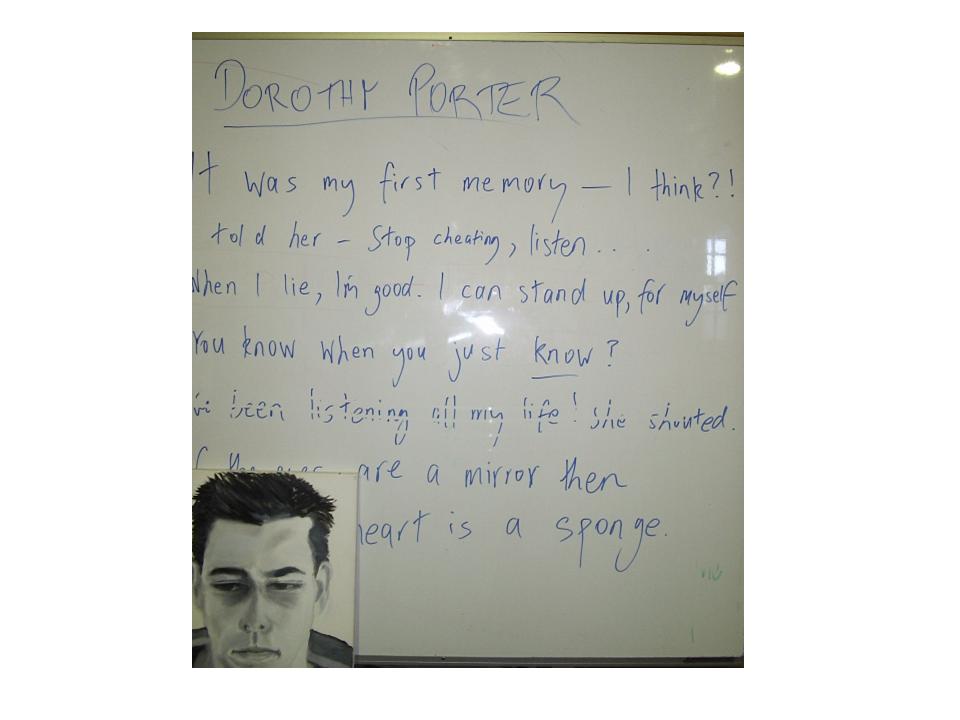 DOROTHY PORTER
It was my first memory – I think?!
told her – Stop cheating, listen . . .
When I lie, I'm good. I can stand up, for myself
You know when you just know?
been listening all my life! she shouted.
are a mirror then
heart is a sponge.